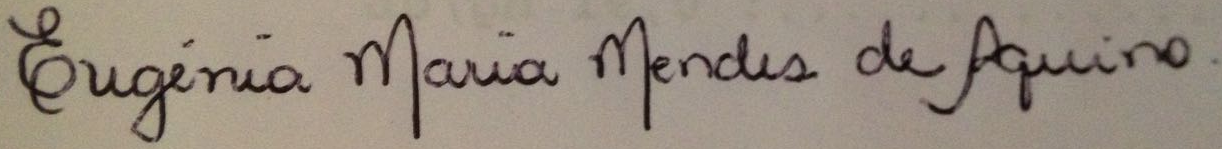 Eugénia Maria Mendes de Aquino.